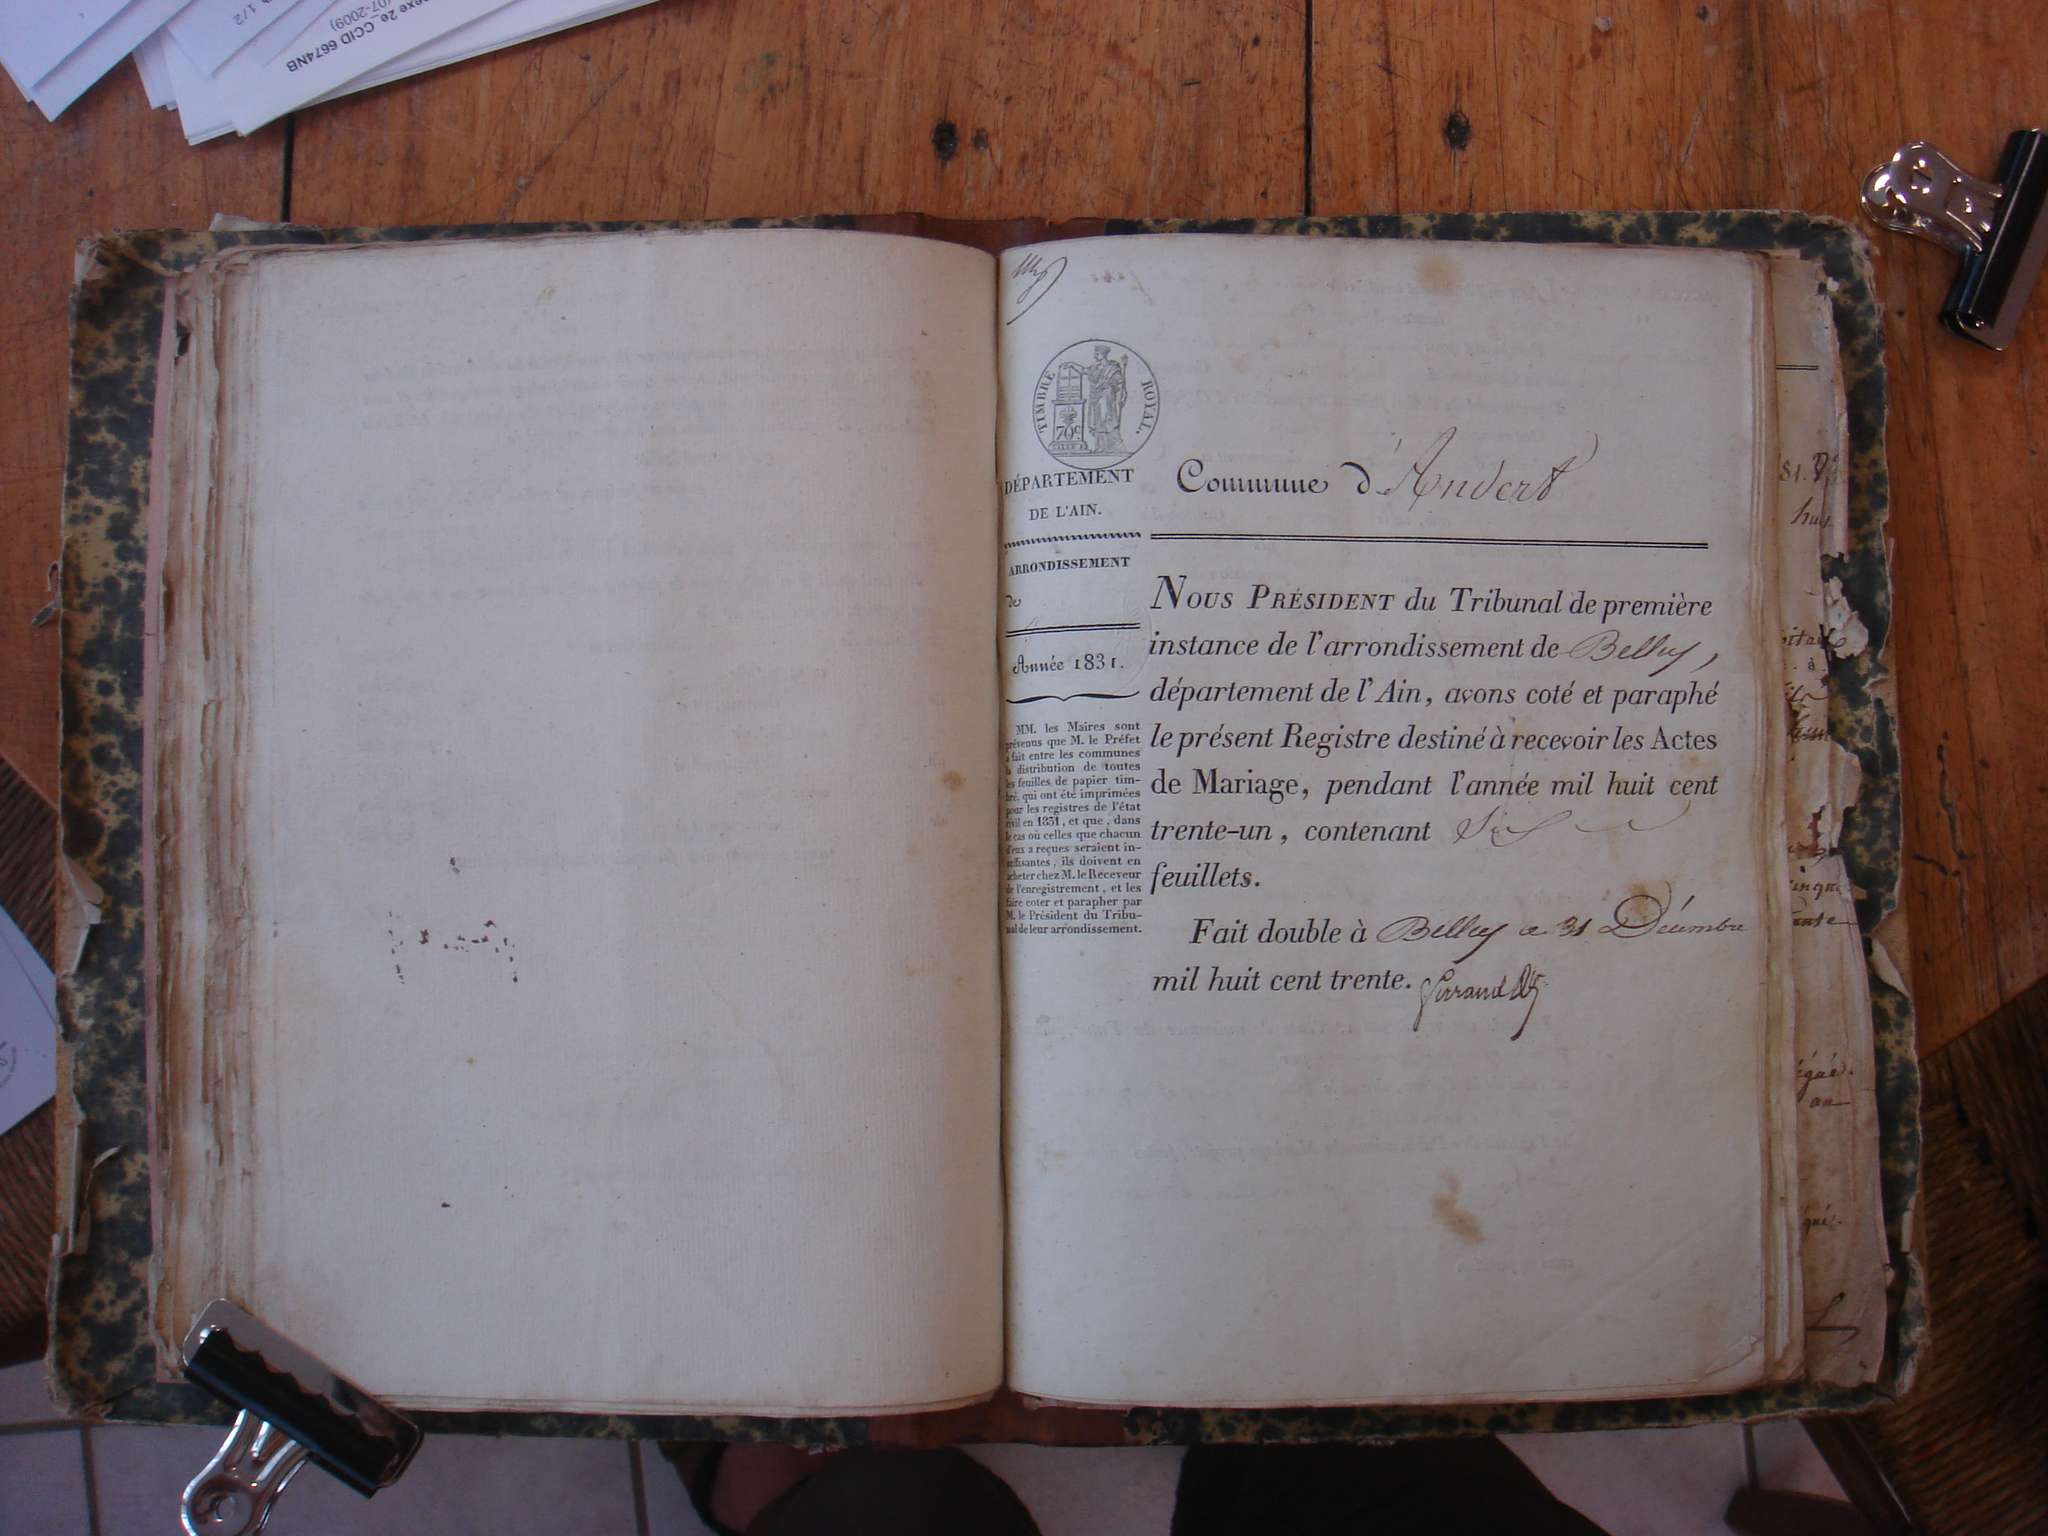 1/2
exe 2e_CCID 6674NB
07-2009)
TIMBRE ROYAL.
70c
DÉPARTEMENT
DE L'AIN.
ARRONDISSEMENT
de
Année 1831.
MM. les Maires sont
prévenus que M. le Préfet
a fait entre les communes
la distribution de toutes
les feuilles de papier tim-
bré, qui ont été imprimées
pour les registres de l'état
civil en 1831, et que, dans
le cas où celles que chacun
d'eux a reçues seraient in-
suffisantes, ils doivent en
acheter chez M. le Receveur
de l'enregistrement, et les
faire coter et parapher par
M. le Président du Tribu-
nal de leur arrondissement.
Commune d'Andert
NOUS PRÉSIDENT du Tribunal de première
instance de l'arrondissement de Belley,
département de l'Ain, avons coté et paraphé
le présent Registre destiné à recevoir les Actes
de Mariage, pendant l'année mil huit cent
trente-un, contenant Six
feuillets.
Fait double à Belley ce 31 Décembre
mil huit cent trente.